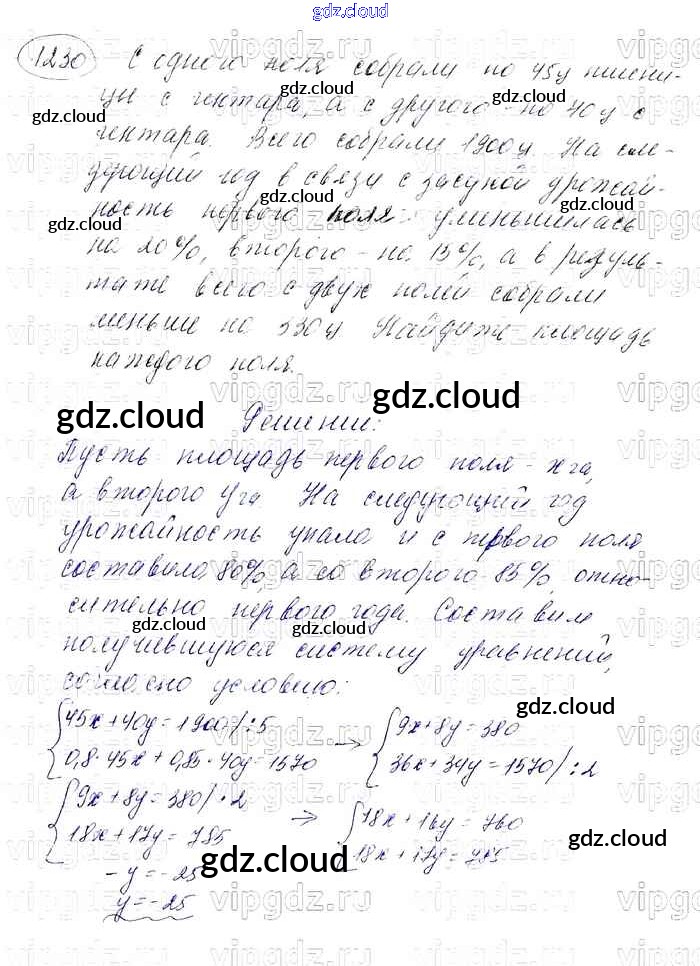 gdz.cloud
1230 С одного поля собрали по 45ц пшени-
цы с гектара, а с другого - по 40ц с
гектара. Всего собрали 1900ц. На сле-
дующий год в связи с засухой урожай-
ность первого поля уменьшилась
на 20%, второго - на 15%, а в резуль-
тате всего с двух полей собрали
меньше на 330ц. Найдите площадь
каждого поля.
Решение:
Пусть площадь первого поля - х га,
а второго y га. На следующий год
урожайность упала и с первого поля
составила 80%, а со второго - 85% отно-
сительно первого года. Составим
получившуюся систему уравнений,
согласно условию:
45x+40y=1900/:5 → 9x+8y=380
0,8·45x+0,85·40y=1570 36x+34y=1570/:2
9x+8y=380/·2 → 18x+16y=760
18x+17y=785 18x+17y=785
-y=-25
y=-25